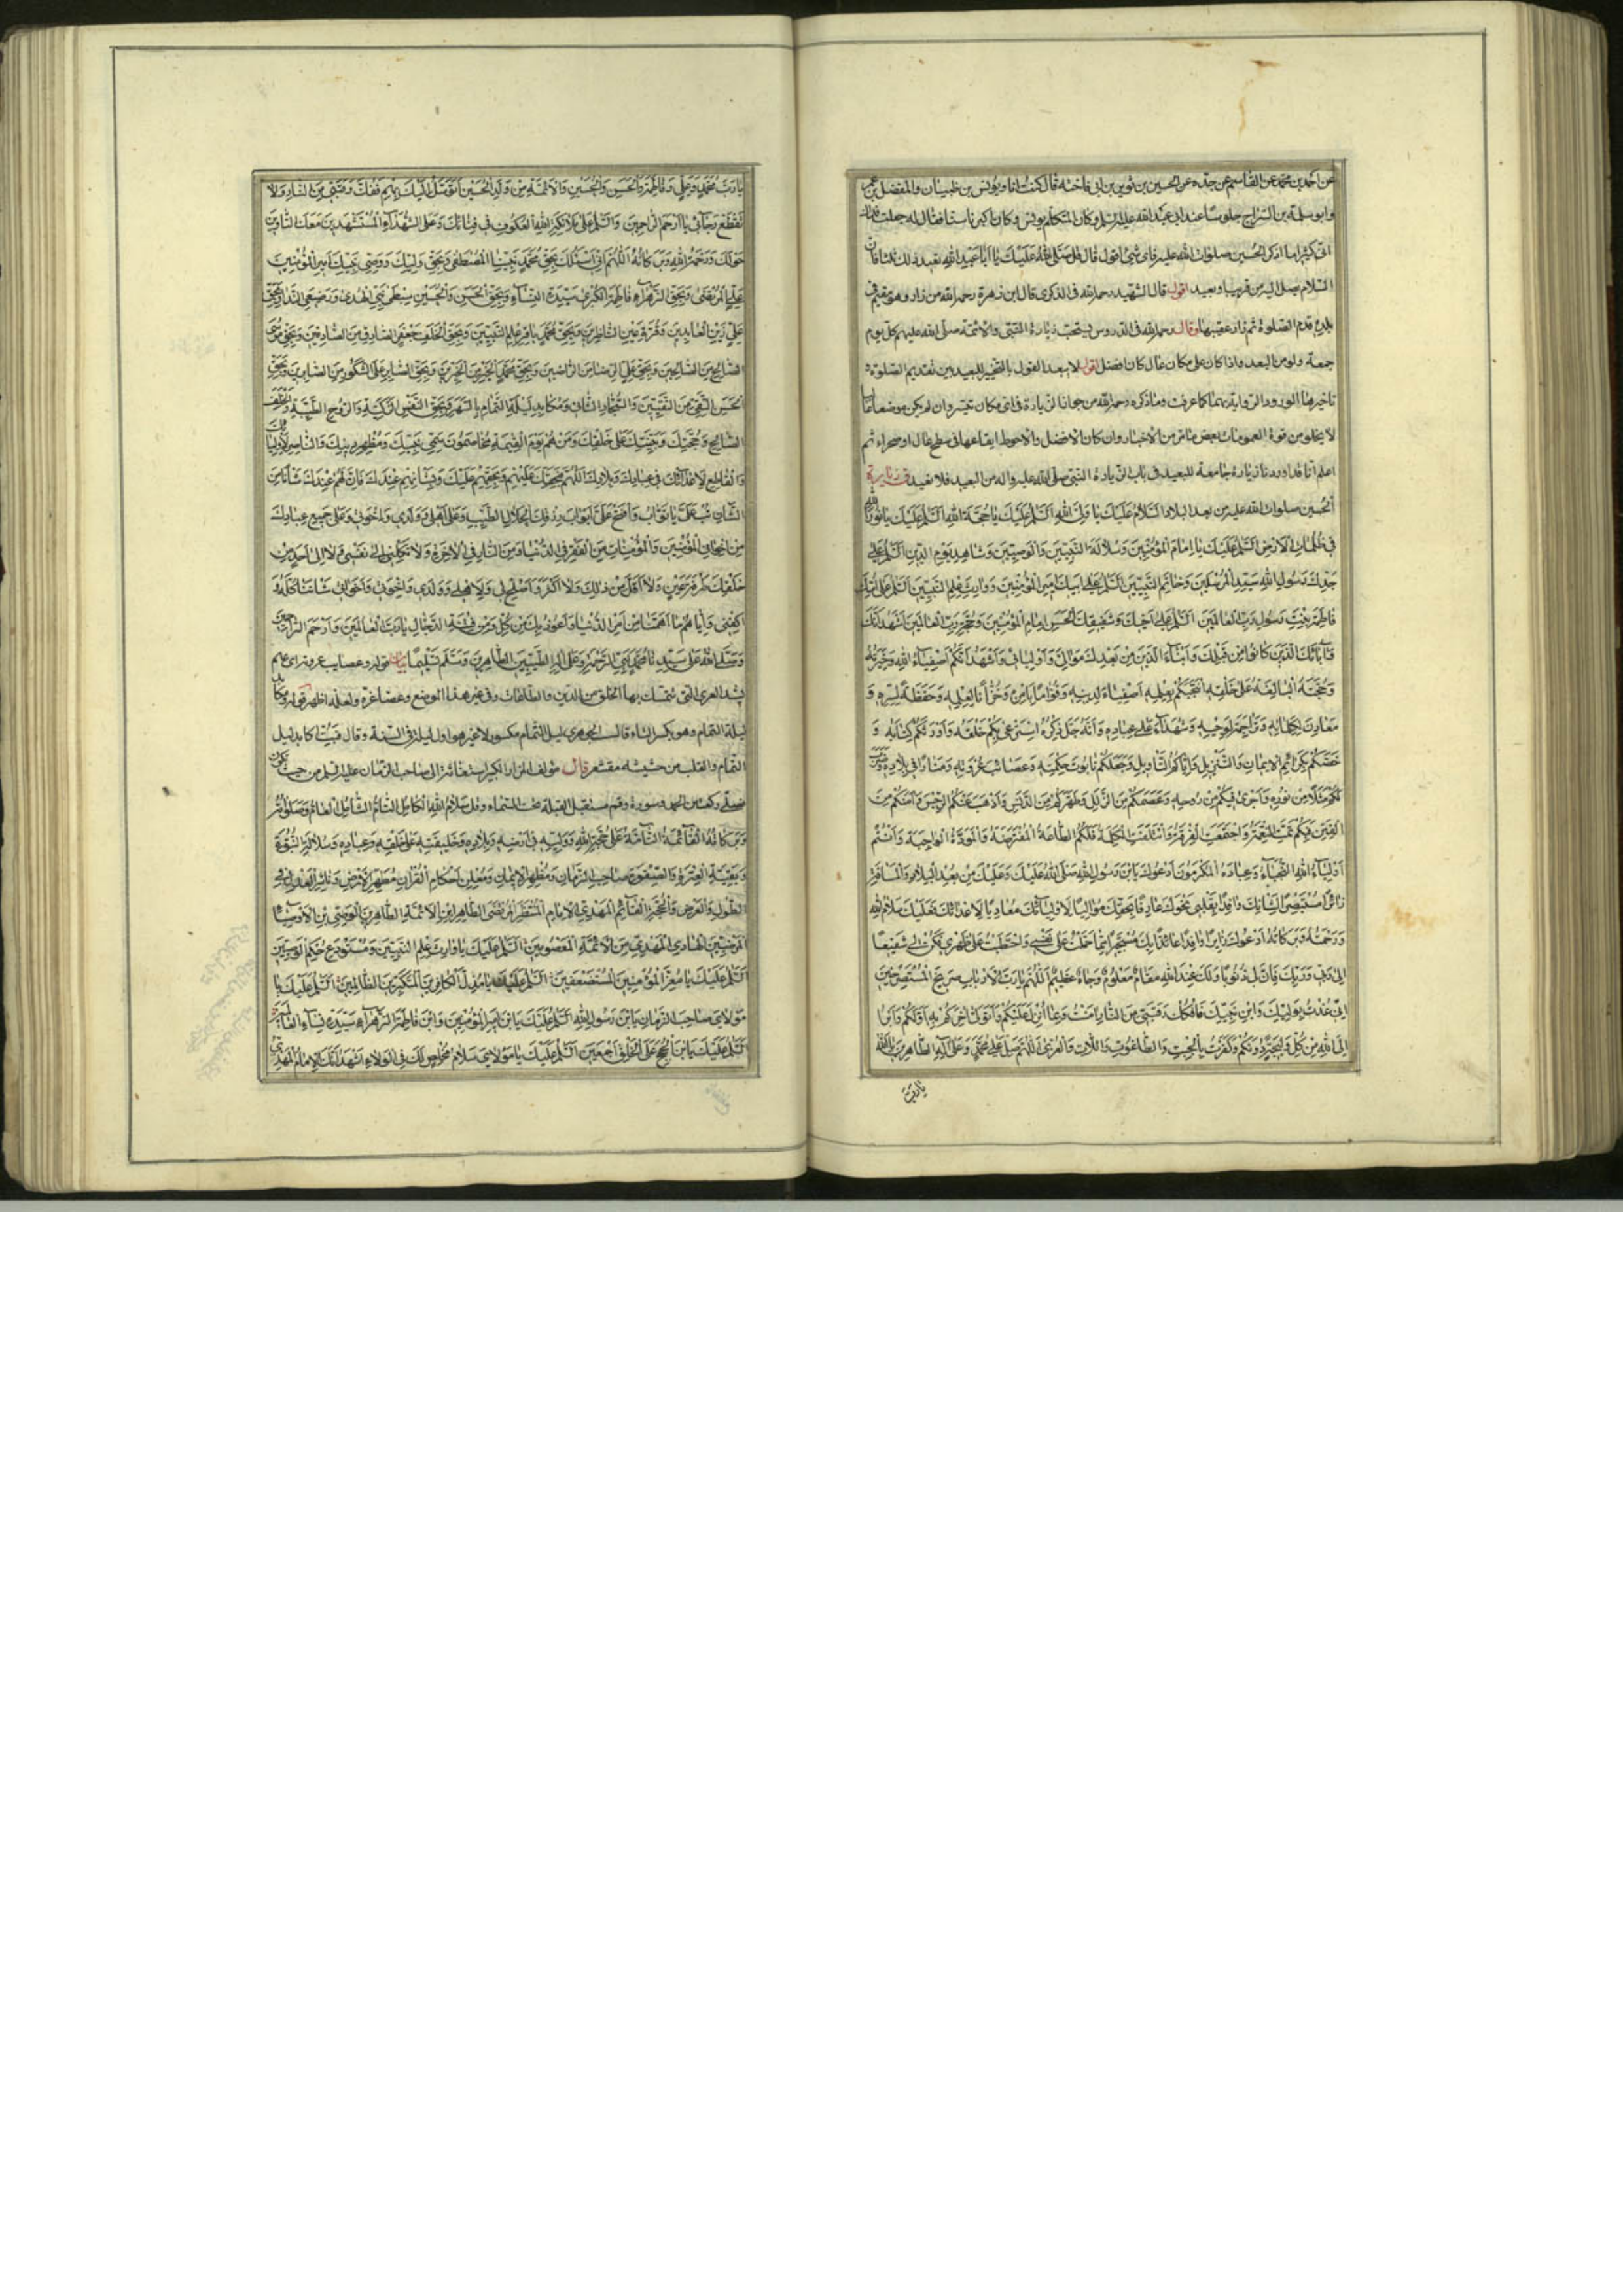 عن احمد بن محمد عن القاسم عن جده عن الحسين بن ثوير بن ابی فاخته قال کنت انا ویونس بن ظبیان والمفضل بن عمر
وابو سلمة بن السراج جلوسا عند ابی عبد الله علیه السلم وکان المتکلم یونس وکان اکبرنا سنا فقال له جعلت فداک
انی کثیرا ما اذکر الحسین صلوات الله علیه فای شئ اقول قال قل صَلَّی اللهُ عَلَیْکَ یا اَبا عَبْدِ اللهِ تعید ذلک ثلثا فان
السلام یصل الیه من قریب او بعید اقول قال الشهید رحمه الله فی الذکری قال ابن زهرة رحمه الله من زار وهو مقیم فی
بلده قدم الصلوة ثم زار عقیبها وقال رحمه الله فی الدروس یستحب زیارة النبی والائمة صلی الله علیهم کل یوم
جمعة ولو من البعد واذا کان علی مکان عال کان افضل اقول لا یبعد القول بالتخییر للبعید بین تقدیم الصلوة و
تاخیرها لورود الروایة بهما کما عرفت وما ذکره رحمه الله من جواز الزیارة فی ای مکان تیسر وان لم یکن موضعا عالیا
لا یخلو من قوة العمومات بعض ما مر من الاخبار وان کان الافضل والاحوط ایقاعها فی سطح عال او صحراء ثم
اعلم انا قد اوردنا زیارة جامعة للبعید فی باب زیارة النبی صلی الله علیه واله من البعید فلا نعید
الحسین صلوات الله علیه من بعد البلاد اَلسَّلامُ عَلَیْکَ یا وَلِیَّ اللهِ اَلسَّلَمُ عَلَیْکَ یا حُجَّةَ اللهِ اَلسَّلَمُ عَلَیْکَ یا نُورَ اللهِ
فی ظُلُماتِ الْاَرْضِ اَلسَّلَمُ عَلَیْکَ یا اِمامَ الْمُؤْمِنینَ وَسُلالَةَ النَّبِیّینَ وَالْوَصِیّینَ وَشاهِدَ یَوْمِ الدّینِ اَلسَّلَمُ عَلی
جَدِّکَ رَسُولِ اللهِ سَیِّدِ الْمُرْسَلینَ وَخاتَمِ النَّبِیّینَ اَلسَّلَمُ عَلی اَبیکَ اَمیرِ الْمُؤْمِنینَ وَوارِثِ عِلْمِ النَّبِیّینَ اَلسَّلَمُ عَلی اُمِّکَ
فاطِمَةَ بِنْتِ رَسُولِ رَبِّ الْعالَمینَ اَلسَّلَمُ عَلی اَخیکَ وَشَقیقِکَ الْحَسَنِ اِمامِ الْمُؤْمِنینَ وَحُجَّةِ رَبِّ الْعالَمینَ اَشْهَدُ اَنَّکَ
وَآبائَکَ الَّذینَ کانُوا مِنْ قَبْلِکَ وَاَبْناءَکَ الَّذینَ مِنْ بَعْدِکَ مَوالِیَّ وَاَوْلِیائی وَاَشْهَدُ اَنَّکُمْ اَصْفِیاءُ اللهِ وَخِیَرَتُهُ
وَحُجَّتُهُ الْبالِغَةُ عَلی خَلْقِهِ اِنْتَجَبَکُمْ بِعِلْمِهِ اَصْفِیاءَ لِدینِهِ وَقُوّاماً بِاَمْرِهِ وَخُزّاناً لِعِلْمِهِ وَحَفَظَةً لِسِرِّهِ وَ
مَعادِنَ لِکَلِماتِهِ وَتَراجِمَةً لِوَحْیِهِ وَشُهَداءَ عَلی عِبادِهِ وَاَنَّهُ جَلَّ ذِکْرُهُ اسْتَرْعی بِکُمْ خَلْقَهُ وَاَوْرَثَکُمْ کِتابَهُ وَ
خَصَّکُمْ بِکَرائِمِ الْایمانِ وَالتَّنْزیلِ وَآتاکُمُ التَّأویلَ وَجَعَلَکُمْ تابُوتَ حِکْمَتِهِ وَعَصائِبَ عُرْوَتِهِ وَمَناراً فی بِلادِهِ وَضَرَبَ
لَکُمْ مَثَلاً مِنْ نُورِهِ وَاَجْری فیکُمْ مِنْ رُوحِهِ وَعَصَمَکُمْ مِنَ الزَّلَلِ وَطَهَّرَکُمْ مِنَ الدَّنَسِ وَاَذْهَبَ عَنْکُمُ الرِّجْسَ وَآمَنَکُمْ مِنَ
الْفِتَنِ فَبِکُمْ تَمَّتِ النِّعْمَةُ وَاجْتَمَعَتِ الْفُرْقَةُ وَائْتَلَفَتِ الْکَلِمَةُ فَلَکُمُ الطّاعَةُ الْمُفْتَرَضَةُ وَالْمَوَدَّةُ الْواجِبَةُ وَاَنْتُمْ
اَوْلِیاءُ اللهِ النُّجَباءُ وَعِبادُهُ الْمُکْرَمُونَ اَدْعُوکَ یَابْنَ رَسُولِ اللهِ صَلَّی اللهُ عَلَیْکَ وَعَلَیْکَ مِنْ بَعیدِ الْبِلادِ وَالْمَسافَةِ
زائِراً مُسْتَبْصِراً بِشانِکَ وافِداً بِقَلْبی نَحْوَکَ عارِفاً بِحَقِّکَ مُوالِیاً لِاَوْلِیائِکَ مُعادِیاً لِاَعْدائِکَ فَعَلَیْکَ سَلامُ اللهِ
وَرَحْمَتُهُ وَبَرَکاتُهُ اَدْعُوکَ زائِراً وافِداً عائِذاً بِکَ مُسْتَجیراً مِمّا حَمَلْتُ عَلی نَفْسی وَاحْتَطَبْتُ عَلی ظَهْری فَکُنْ لی شَفیعاً
اِلی رَبّی وَرَبِّکَ فَاِنَّ لی ذُنُوباً وَلَکَ عِنْدَ اللهِ مَقامٌ مَعْلُومٌ وَجاهٌ عَظیمٌ اَللّهُمَّ یا رَبَّ الْاَرْبابِ صَریخَ الْمُسْتَصْرِخینَ
اِنّی عُذْتُ بِوَلِیِّکَ وَابْنِ نَبِیِّکَ فَافْکُکْ رَقَبَتی مِنَ النّارِ آمَنْتُ وَبِما اُنْزِلَ عَلَیْکُمْ وَاَتَوَلّی آخِرَکُمْ بِهِ اَوَّلَکُمْ وَاَبْرَأُ
اِلَی اللهِ مِنْ کُلِّ وَلیجَةٍ دُونَکُمْ وَکَفَرْتُ بِالْجِبْتِ وَالطّاغُوتِ وَاللّاتِ وَالْعُزّی اَللّهُمَّ صَلِّ عَلی مُحَمَّدٍ وَعَلی آلِهِ الطّاهِرینَ
یا رَبَّ
یا رَبَّ مُحَمَّدٍ وَعَلِیٍّ وَفاطِمَةَ وَالْحَسَنِ وَالْحُسَیْنِ وَالْاَئِمَّةِ مِنْ وَلَدِ الْحُسَیْنِ اَتَوَسَّلُ اِلَیْکَ بِهِمْ فَفُکَّ رَقَبَتی مِنَ النّارِ وَلا
تَقْطَعْ رَجائی یا اَرْحَمَ الرّاحِمینَ وَالسَّلَمُ عَلی مَلائِکَةِ اللهِ الْعُکُوفِ فی فِنائِکَ وَعَلَی الشُّهَداءِ الْمُسْتَشْهَدینَ مَعَکَ الثّاوینَ
حَوْلَکَ وَرَحْمَةُ اللهِ وَبَرَکاتُهُ اَللّهُمَّ اِنّی اَسْئَلُکَ بِحَقِّ مُحَمَّدٍ نَبِیِّنَا الْمُصْطَفی وَبِحَقِّ وَلِیِّکَ وَوَصِیِّ نَبِیِّکَ اَمیرِ الْمُؤْمِنینَ
عَلِیٍّ الْمُرْتَضی وَبِحَقِّ الزَّهْراءِ فاطِمَةَ الْکُبْری سَیِّدَةِ النِّساءِ وَبِحَقِّ الْحَسَنِ وَالْحُسَیْنِ سِبْطَیْ نَبِیِّ الْهُدی وَرَضیعَیِ النَّدی وَبِحَقِّ
عَلِیٍّ زَیْنِ الْعابِدینَ وَقُرَّةِ عَیْنِ النّاظِرینَ وَبِحَقِّ مُحَمَّدٍ باقِرِ عِلْمِ النَّبِیّینَ وَبِحَقِّ الْخَلَفِ جَعْفَرٍ الصّادِقِ مِنَ الصّادِقینَ وَبِحَقِّ مُوسَی
الصّالِحِ مِنَ الصّالِحینَ وَبِحَقِّ عَلِیٍّ الرِّضا مِنَ الرّاضینَ وَبِحَقِّ مُحَمَّدٍ الْخَیِّرِ مِنَ الْخَیِّرینَ وَبِحَقِّ الصّابِرِ عَلِیٍّ الشَّکُورِ مِنَ الصّابِرینَ وَبِحَقِّ
الْحَسَنِ التَّقِیِّ مِنَ النَّقِیّینَ وَالسَّجّادِ الثّانی وَمُکابِدِ لَیْلَةِ التَّمامِ بِالسَّهَرِ وَبِحَقِّ النَّفْسِ الزَّکِیَّةِ وَالرُّوحِ الطَّیِّبَةِ
الصّالِحِ وَحُجَّتِکَ عَلی خَلْقِکَ وَمَنْ هُمْ یَوْمَ الْقِیمَةِ سَمِیِّ نَبِیِّکَ وَمُظْهِرِ دینِکَ وَالنّاصِرِ لِاَوْلِیائِکَ
وَالْقامِعِ لِاَعْدائِکَ فی عِبادِکَ وَبِلادِکَ اَللّهُمَّ بِحَقِّکَ عَلَیْهِمْ وَبِحَقِّهِمْ عَلَیْکَ وَبِشانِهِمْ عِنْدَکَ فَاِنَّ لَهُمْ عِنْدَکَ شَأْناً مِنَ
الشّانِ تُبْ عَلَیَّ یا تَوّابُ وَافْتَحْ عَلَیَّ اَبْوابَ رِزْقِکَ الْحَلالِ الطَّیِّبِ وَعَلی اَهْلی وَوَلَدی وَاِخْوَتی وَعَلی جَمیعِ عِبادِکَ
مِنَ الْمُؤْمِنینَ وَالْمُؤْمِناتِ مِنَ الْفَقْرِ فِی الدُّنْیا وَمِنَ النّارِ فِی الْاخِرَةِ وَلا تَکِلْنی اِلی نَفْسی وَلا اِلی اَحَدٍ مِنْ
خَلْقِکَ طَرْفَةَ عَیْنٍ وَلا اَقَلَّ مِنْ ذلِکَ وَلا اَکْثَرَ وَاَصْلِحْ لی وَلِاَهْلی وَوَلَدی وَاِخْوَتی وَاَخَواتی شَأْنَنا کُلَّهُ وَ
اکْفِنی وَاِیّاهُمْ ما اَهَمَّنا مِنْ اَمْرِ الدُّنْیا وَاَعُوذُ بِکَ مِنْ کُلِّ وَمِنْ فِتْنَةِ الدَّجّالِ یا رَبَّ الْعالَمینَ وَاَرْحَمَ الرّاحِمینَ
وَصَلَّی اللهُ عَلی سَیِّدِنا مُحَمَّدٍ نَبِیِّ الرَّحْمَةِ وَعَلی آلِهِ الطَّیِّبینَ الطّاهِرینَ وَسَلَّمَ تَسْلیماً بیان قوله وعصایب عروته ای بهم
یشد العری التی یتمسک بها الخلق من الدین والطاعات وفی غیر هذا الموضع وعصا عزه ولعله اظهر قوله ومکابد
لیلة التمام وهو بکسر التاء قال الجوهری لیل التمام مکسور لا غیر هو اطول لیلة فی السنة وقال
التمام والقلب من خشیته مقشعر قال مؤلف المزار الکبیر استغاثة الی صاحب الزمان علیه السلم من حیث تکون
تصلی رکعتین الحمد وسورة وقم مستقبل القبلة تحت السماء وقل سَلامُ اللهِ الْکامِلُ التّامُّ الشّامِلُ الْعامُّ وَصَلَواتُهُ
وَبَرَکاتُهُ الْقائِمَةُ التّامَّةُ عَلی حُجَّةِ اللهِ وَوَلِیِّهِ فی اَرْضِهِ وَبِلادِهِ وَخَلیفَتِهِ عَلی خَلْقِهِ وَعِبادِهِ وَسُلالَةِ النُّبُوَّةِ
وَبَقِیَّةِ الْعِتْرَةِ وَالصَّفْوَةِ صاحِبِ الزَّمانِ وَمُظْهِرِ الْایمانِ وَمُعْلِنِ اَحْکامِ الْقُرْآنِ مُطَهِّرِ الْاَرْضِ وَناشِرِ الْعَدْلِ فِی
الطُّولِ وَالْعَرْضِ وَالْحُجَّةِ الْقائِمِ الْمَهْدِیِّ الْاِمامِ الْمُنْتَظَرِ الْمُرْتَضَی الطّاهِرِ ابْنِ الْاَئِمَّةِ الطّاهِرینَ الْوَصِیِّ بْنِ الْاَوْصِیاءِ
الْمَرْضِیّینَ الْهادِی الْمَهْدِیِّ بْنِ الْاَئِمَّةِ الْمَعْصُومینَ اَلسَّلَمُ عَلَیْکَ یا وارِثَ عِلْمِ النَّبِیّینَ وَمُسْتَوْدَعَ حِکَمِ الْوَصِیّینَ
اَلسَّلَمُ عَلَیْکَ یا مُعِزَّ الْمُؤْمِنینَ الْمُسْتَضْعَفینَ اَلسَّلَمُ عَلَیْکَ یا مُذِلَّ الْکافِرینَ الْمُتَکَبِّرینَ الظّالِمینَ اَلسَّلَمُ عَلَیْکَ یا
مَوْلایَ صاحِبَ الزَّمانِ یَابْنَ رَسُولِ اللهِ اَلسَّلَمُ عَلَیْکَ یَابْنَ اَمیرِ الْمُؤْمِنینَ وَابْنَ فاطِمَةَ الزَّهْراءِ سَیِّدَةِ نِساءِ الْعالَمینَ
اَلسَّلَمُ عَلَیْکَ یَابْنَ الْحُجَجِ عَلَی الْخَلْقِ اَجْمَعینَ اَلسَّلَمُ عَلَیْکَ یا مَوْلایَ سَلامَ مُخْلِصٍ لَکَ فِی الْوِلاءِ اَشْهَدُ اَنَّکَ الْاِمامُ الْمَهْدِیُّ